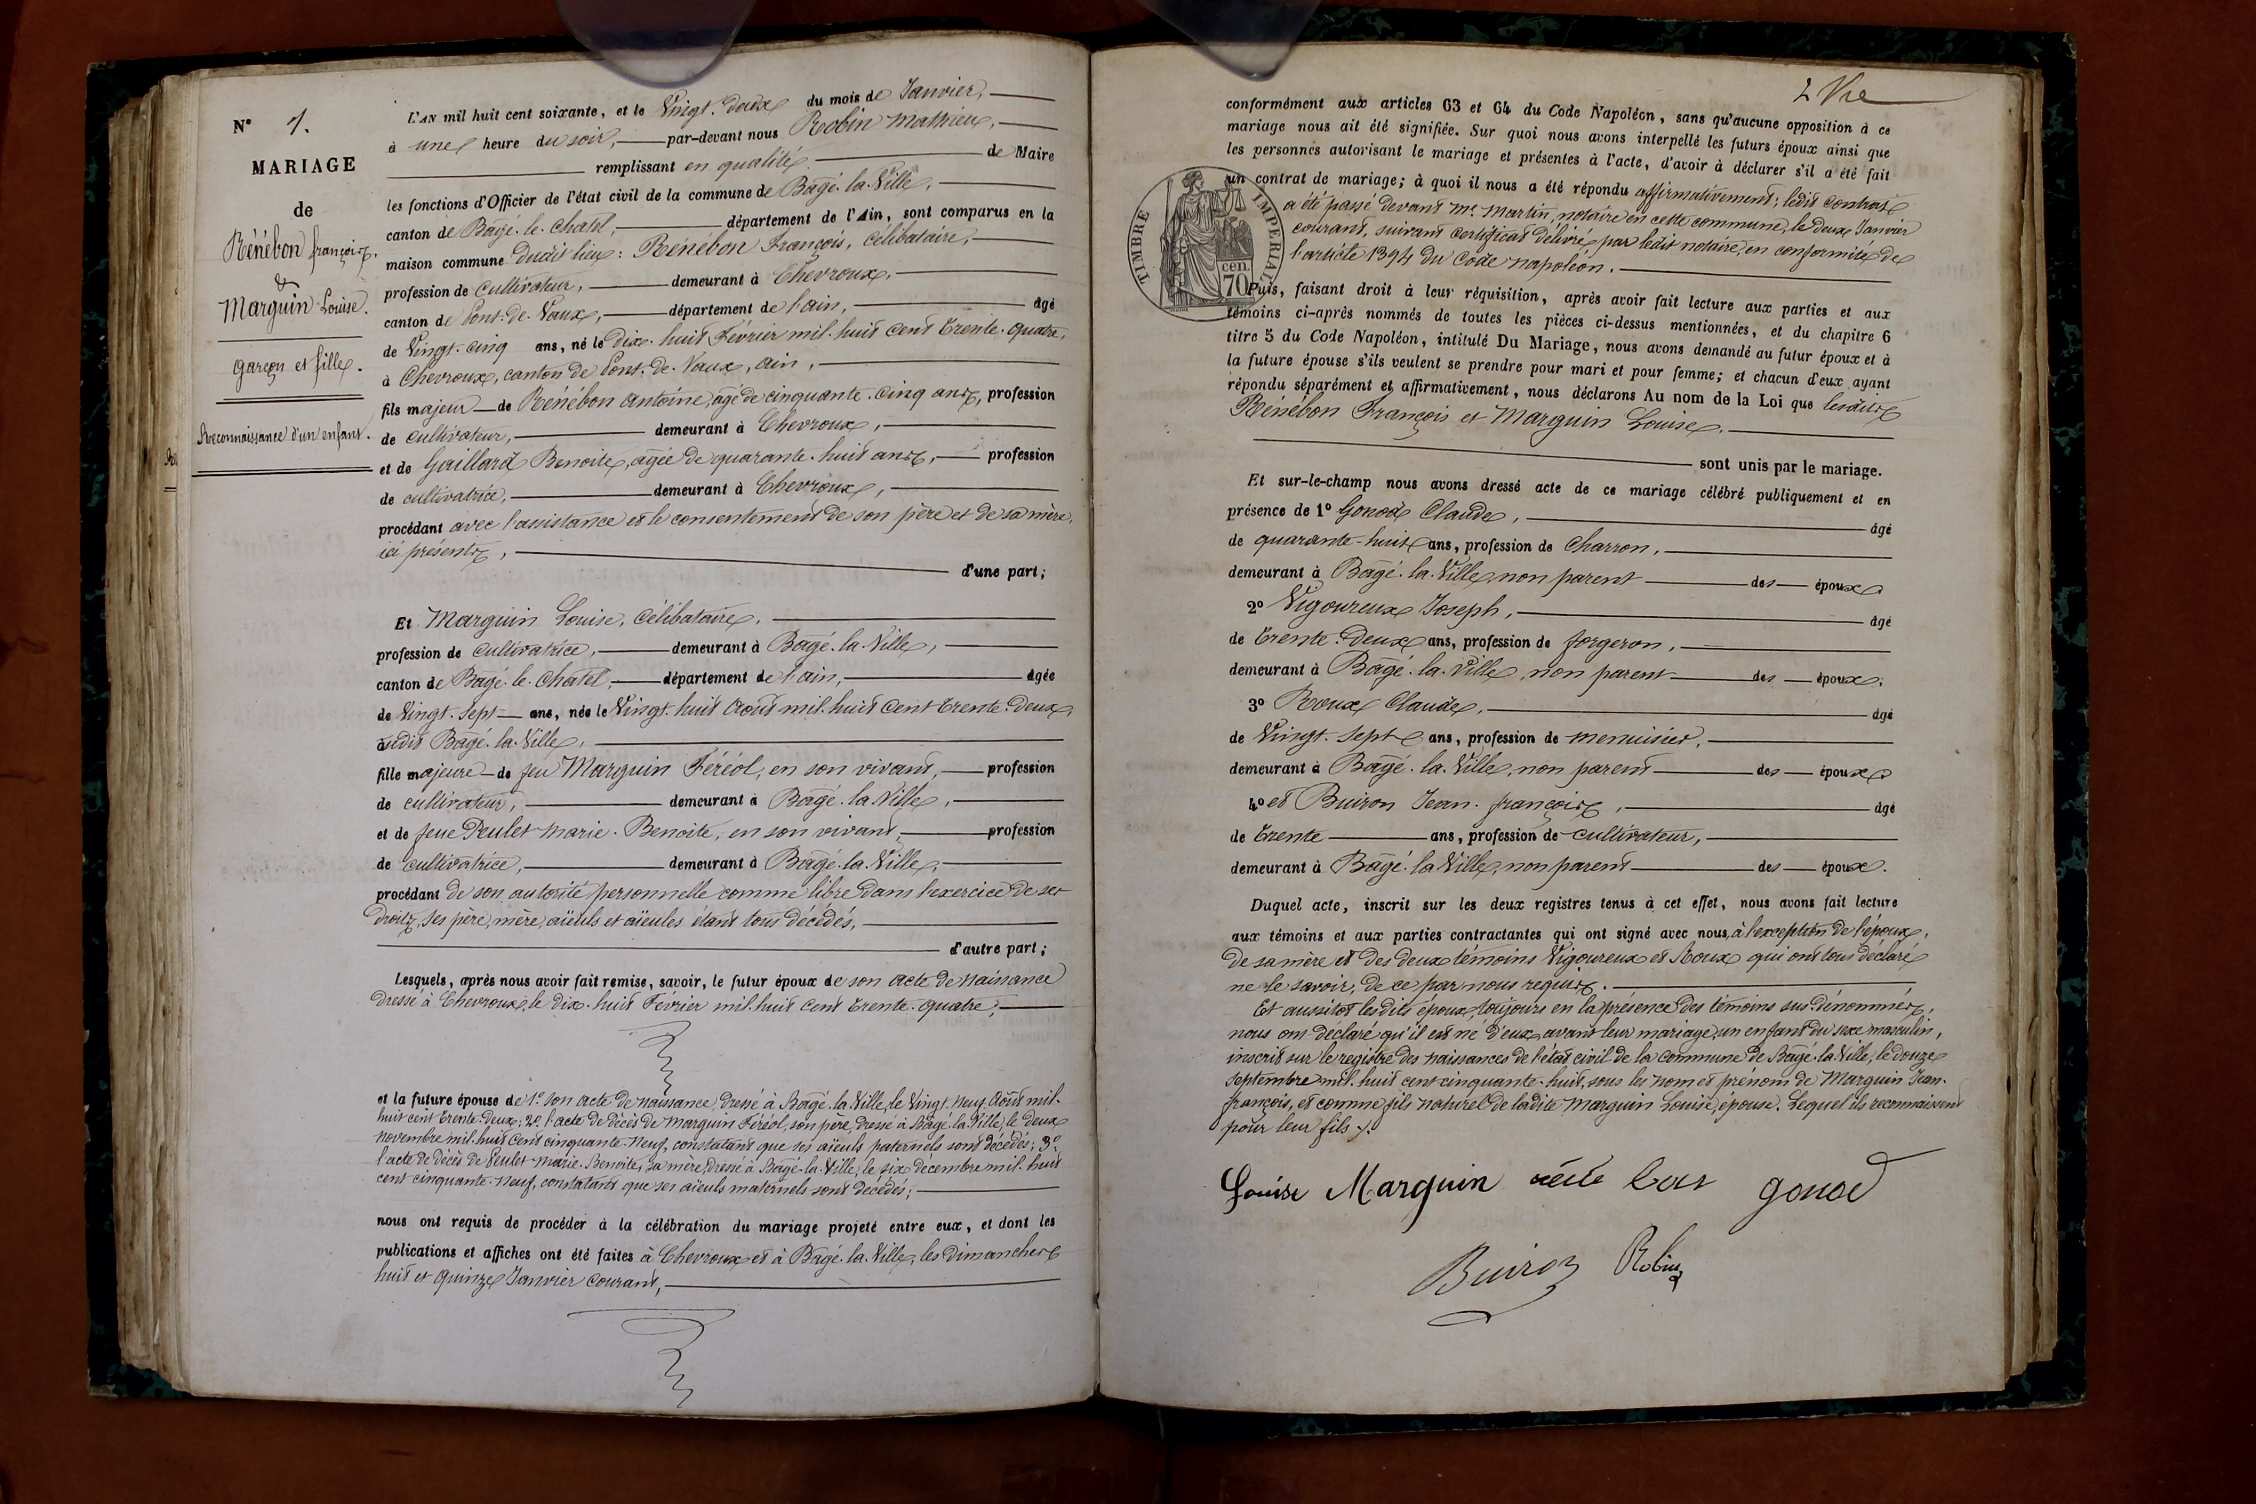 N° 1.
MARIAGE
de
Bénébon françois.
&
Marguin Louise.
garçon et fille.
Reconnaissance d'un enfant.
L'AN mil huit cent soixante, et le Vingt-deux du mois de Janvier,
à une heure du soir, par-devant nous Robin Mathieu,
remplissant en qualité de Maire
les fonctions d'Officier de l'état civil de la commune de Bâgé-la-Ville,
canton de Bâgé-le-Chatel, département de l'Ain, sont comparus en la
maison commune dudit lieu : Bénébon François, Célibataire,
profession de cultivateur, demeurant à Chevroux,
canton de Pont-de-Vaux, département de l'ain, âgé
de Vingt-cinq ans, né le dix-huit Février mil-huit cent trente-quatre,
à Chevroux, canton de Pont-de-Vaux, ain,
fils majeur de Bénébon Antoine, âgé de cinquante-cinq ans, profession
de cultivateur, demeurant à Chevroux,
et de Gaillard Benoite, agée de quarante-huit ans, profession
de cultivatrice, demeurant à Chevroux,
procédant avec l'assistance et le consentement de son père et de sa mère,
ici présents,
d'une part ;
Et Marguin Louise, Célibataire,
profession de cultivatrice, demeurant à Bâgé-la-Ville,
canton de Bâgé-le-Chatel, département de l'ain, âgée
de Vingt-Sept ans, née le Vingt-huit Août mil-huit cent trente-deux,
audit Bâgé-la-Ville,
fille majeure de feu Marguin Féréol, en son vivant, profession
de cultivateur, demeurant à Bâgé-la-Ville,
et de feue Peulet Marie-Benoite, en son vivant, profession
de cultivatrice, demeurant à Bâgé-la-Ville,
procédant de son autorité personnelle comme libre dans l'exercice de ses
droits, ses père, mère, aïeuls et aïeules étant tous décédés,
d'autre part ;
Lesquels, après nous avoir fait remise, savoir, le futur époux de son acte de Naissance
dressé à Chevroux, le dix-huit Février mil-huit cent trente-quatre,
et la future épouse de 1° son acte de naissance, dressé à Bâgé-la-Ville, le Vingt-neuf Août mil-
huit cent trente-deux ; 2° l'acte de décès de Marguin Féréol, son père, dressé à Bâgé-la-Ville, le deux
novembre mil-huit cent cinquante-neuf, constatant que ses aïeuls paternels sont décédés ; 3°
l'acte de décès de Peulet Marie-Benoite, sa mère, dressé à Bâgé-la-Ville, le six décembre mil-huit
cent cinquante-neuf, constatant que ses aïeuls maternels sont décédés ;
nous ont requis de procéder à la célébration du mariage projeté entre eux, et dont les
publications et affiches ont été faites à Chevroux et à Bâgé-la-Ville, les dimanches
huit et quinze Janvier courant,
2
conformément aux articles 63 et 64 du Code Napoléon, sans qu'aucune opposition à ce
mariage nous ait été signifiée. Sur quoi nous avons interpellé les futurs époux ainsi que
les personnes autorisant le mariage et présentes à l'acte, d'avoir à déclarer s'il a été fait
un contrat de mariage ; à quoi il nous a été répondu affirmativement ; ledit contrat
a été passé devant Me Martin, notaire en cette commune, le deux Janvier
courant, suivant certificat délivré par ledit notaire, en conformité de
l'article 1394 du Code napoléon.
TIMBRE IMPERIAL
cen.
70
Puis, faisant droit à leur réquisition, après avoir fait lecture aux parties et aux
témoins ci-après nommés de toutes les pièces ci-dessus mentionnées, et du chapitre 6
titre 5 du Code Napoléon, intitulé Du Mariage, nous avons demandé au futur époux et à
la future épouse s'ils veulent se prendre pour mari et pour femme ; et chacun d'eux ayant
répondu séparément et affirmativement, nous déclarons Au nom de la Loi que lesdits
Bénébon François et Marguin Louise,
sont unis par le mariage.
Et sur-le-champ nous avons dressé acte de ce mariage célébré publiquement et en
présence de 1° Gonod Claude, âgé
de quarante-huit ans, profession de Charron,
demeurant à Bâgé-la-Ville, non parent des époux.
2° Vigoureux Joseph, âgé
de trente-deux ans, profession de forgeron,
demeurant à Bâgé-la-Ville, non parent des époux.
3° Roux Claude, âgé
de Vingt-sept ans, profession de menuisier,
demeurant à Bâgé-la-Ville, non parent des époux.
4° et Buiron Jean-françois, âgé
de trente ans, profession de cultivateur,
demeurant à Bâgé-la-Ville, non parent des époux.
Duquel acte, inscrit sur les deux registres tenus à cet effet, nous avons fait lecture
aux témoins et aux parties contractantes qui ont signé avec nous, à l'exception de l'époux,
de sa mère et des deux témoins Vigoureux et Roux qui ont tous déclaré
ne le savoir, de ce par nous requis.
Et aussitôt lesdits époux, toujours en la présence des témoins sus-dénommés,
nous ont déclaré qu'il est né d'eux, avant leur mariage, un enfant du sexe masculin,
inscrit sur le registre des naissances de l'état civil de la commune de Bâgé-la-Ville, le douze
Septembre mil-huit cent cinquante-huit, sous les nom et prénom de Marguin Jean-
françois, et comme fils naturel de ladite Marguin Louise, épouse. Lequel ils reconnaissent
pour leur fils.
Louise Marguin gonod
Buiron Robin